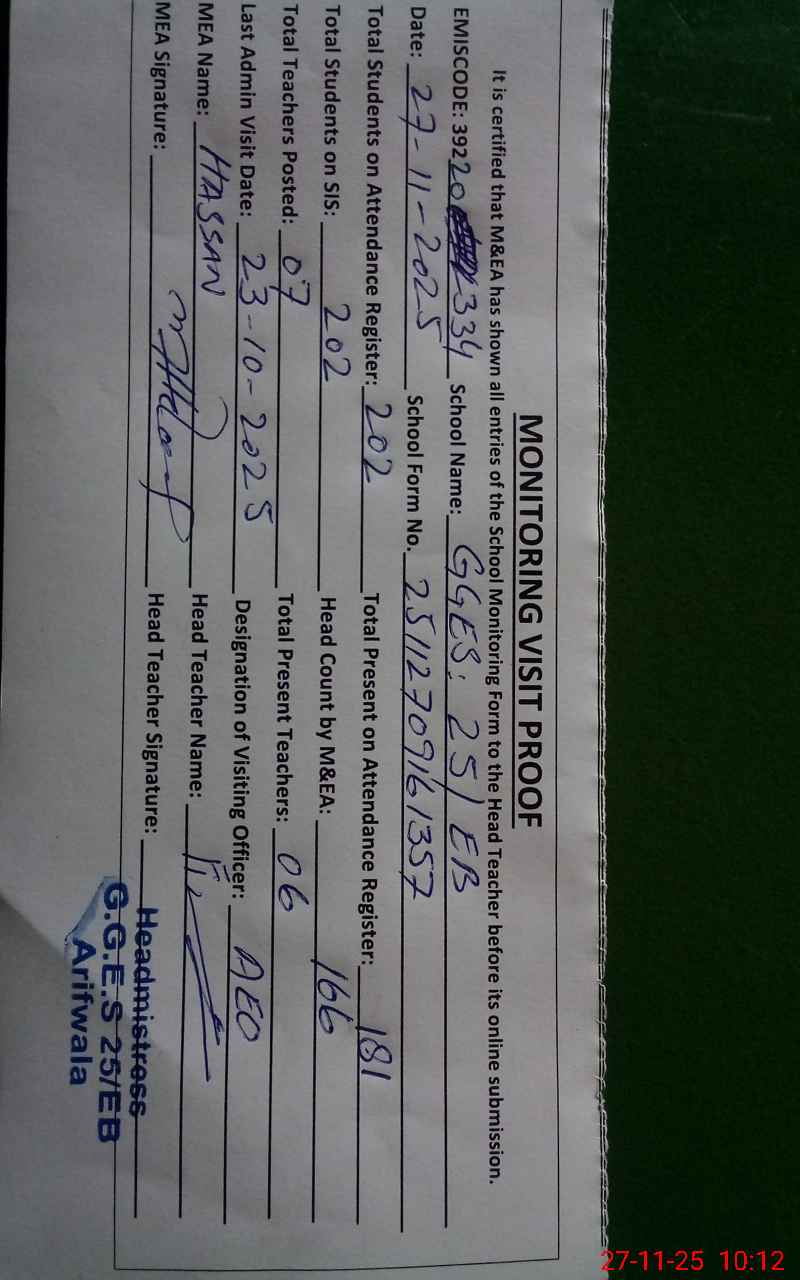 MONITORING VISIT PROOF
It is certified that M&EA has shown all entries of the School Monitoring Form to the Head Teacher before its online submission.
EMISCODE: 39220 334 School Name: GGES: 25/EB
Date: 27-11-2025 School Form No. 25112709161357
Total Students on Attendance Register: 202 Total Present on Attendance Register: 181
Total Students on SIS: 202 Head Count by M&EA: 166
Total Teachers Posted: 07 Total Present Teachers: 06
Last Admin Visit Date: 23-10-2025 Designation of Visiting Officer: AEO
MEA Name: HASSAN Head Teacher Name:
MEA Signature: Head Teacher Signature:
Headmistress
G.G.E.S 25/EB
Arifwala
27-11-25 10:12